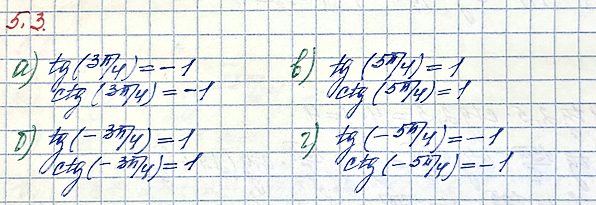 5.3.
а) tg(3π/4) = -1
ctg(3π/4) = -1
б) tg(-3π/4) = 1
ctg(-3π/4) = 1
в) tg(5π/4) = 1
ctg(5π/4) = 1
г) tg(-5π/4) = -1
ctg(-5π/4) = -1